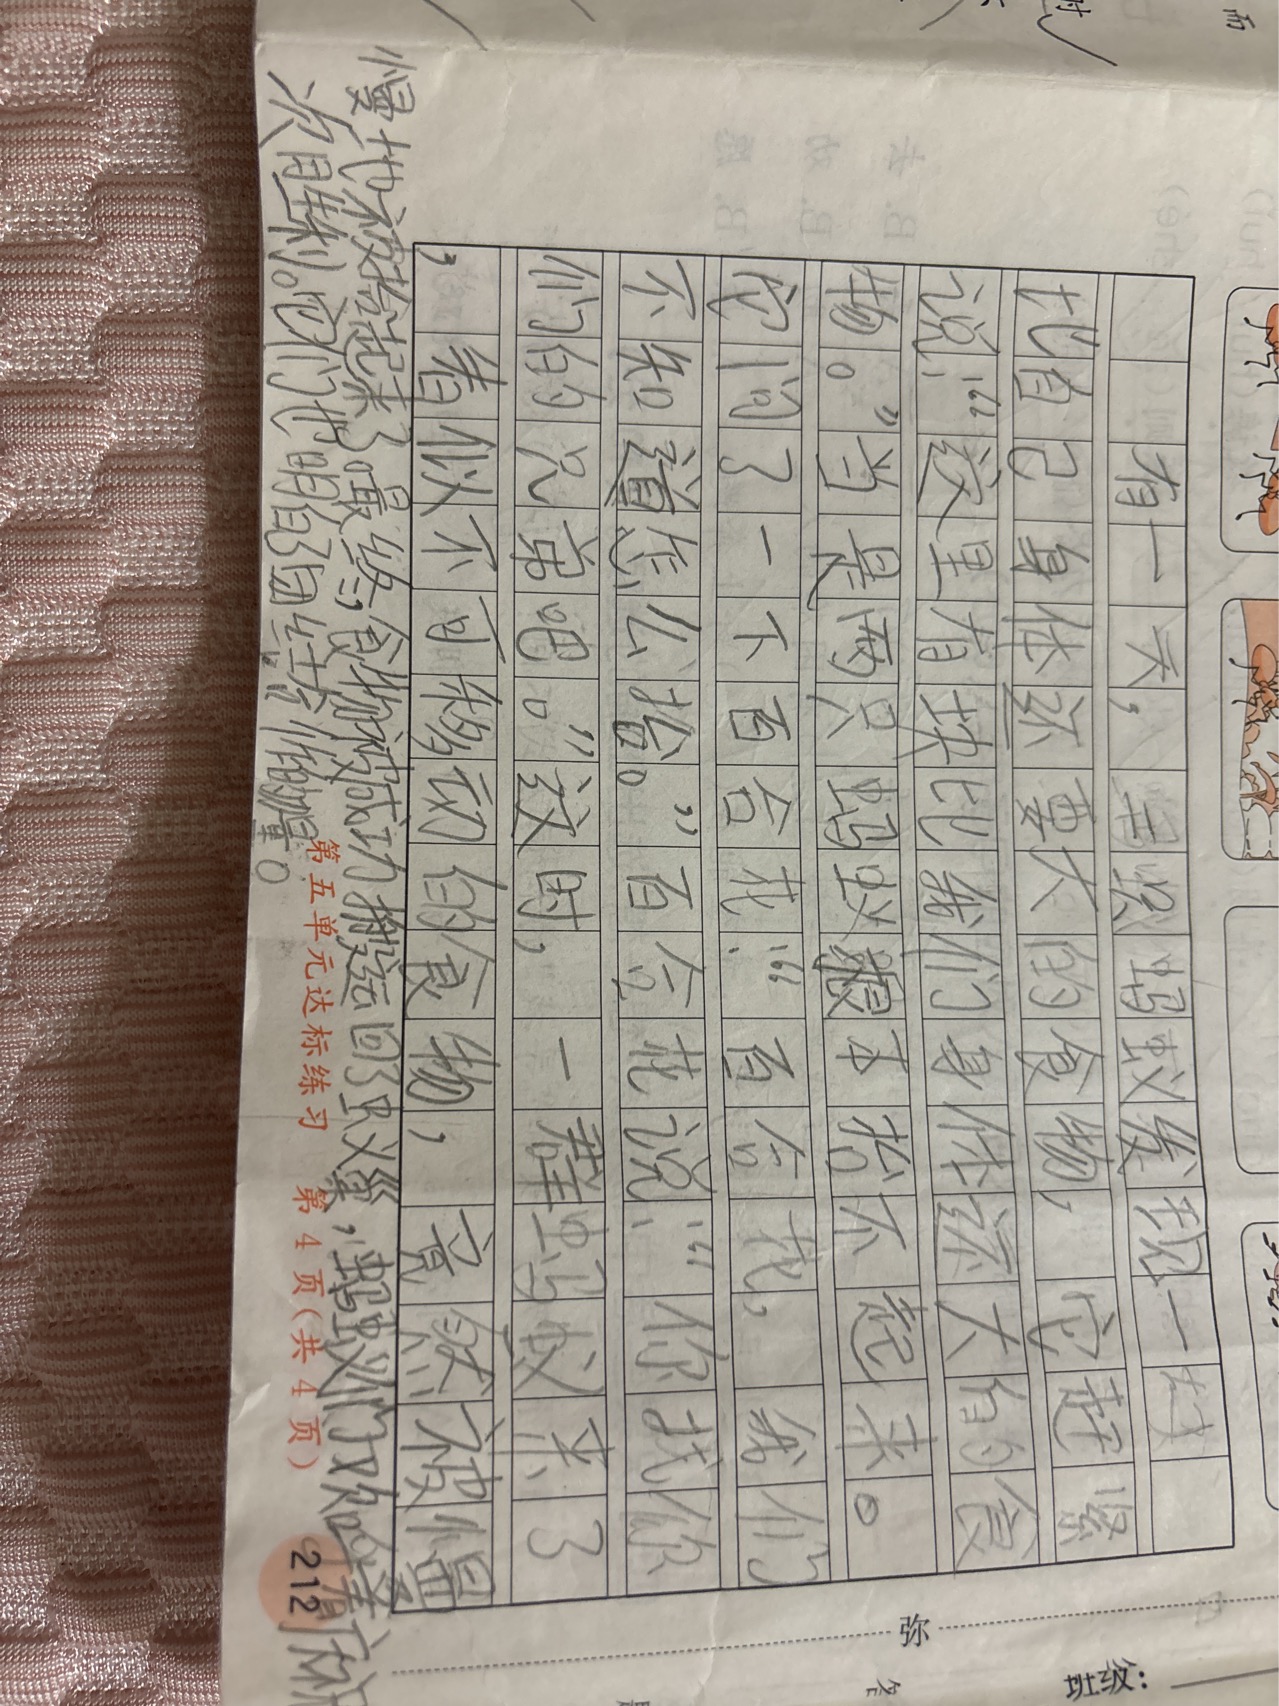 有一天,黑蚂蚁发现一块
比自己身体还要大的食物,它赶紧
说:“这里有块比我们身体还大的食
物。”当是两只蚂蚁跟本抬不起来。
它们问了一下百合花:“百合花,我们
不知道怎么抬。”百合花说:“你找你
们的兄弟吧。”这时,一群蚂蚁来了
,看似不可移动的食物,竟然被慢
慢地被抬起来了最终,食物被成功搬运回了虫义巢,蚂蚁们欢笑着庆祝
次胜利。同们也明白了团结的力量。
第五单元达标练习 第4页(共4页)
212
弥
班级:
名